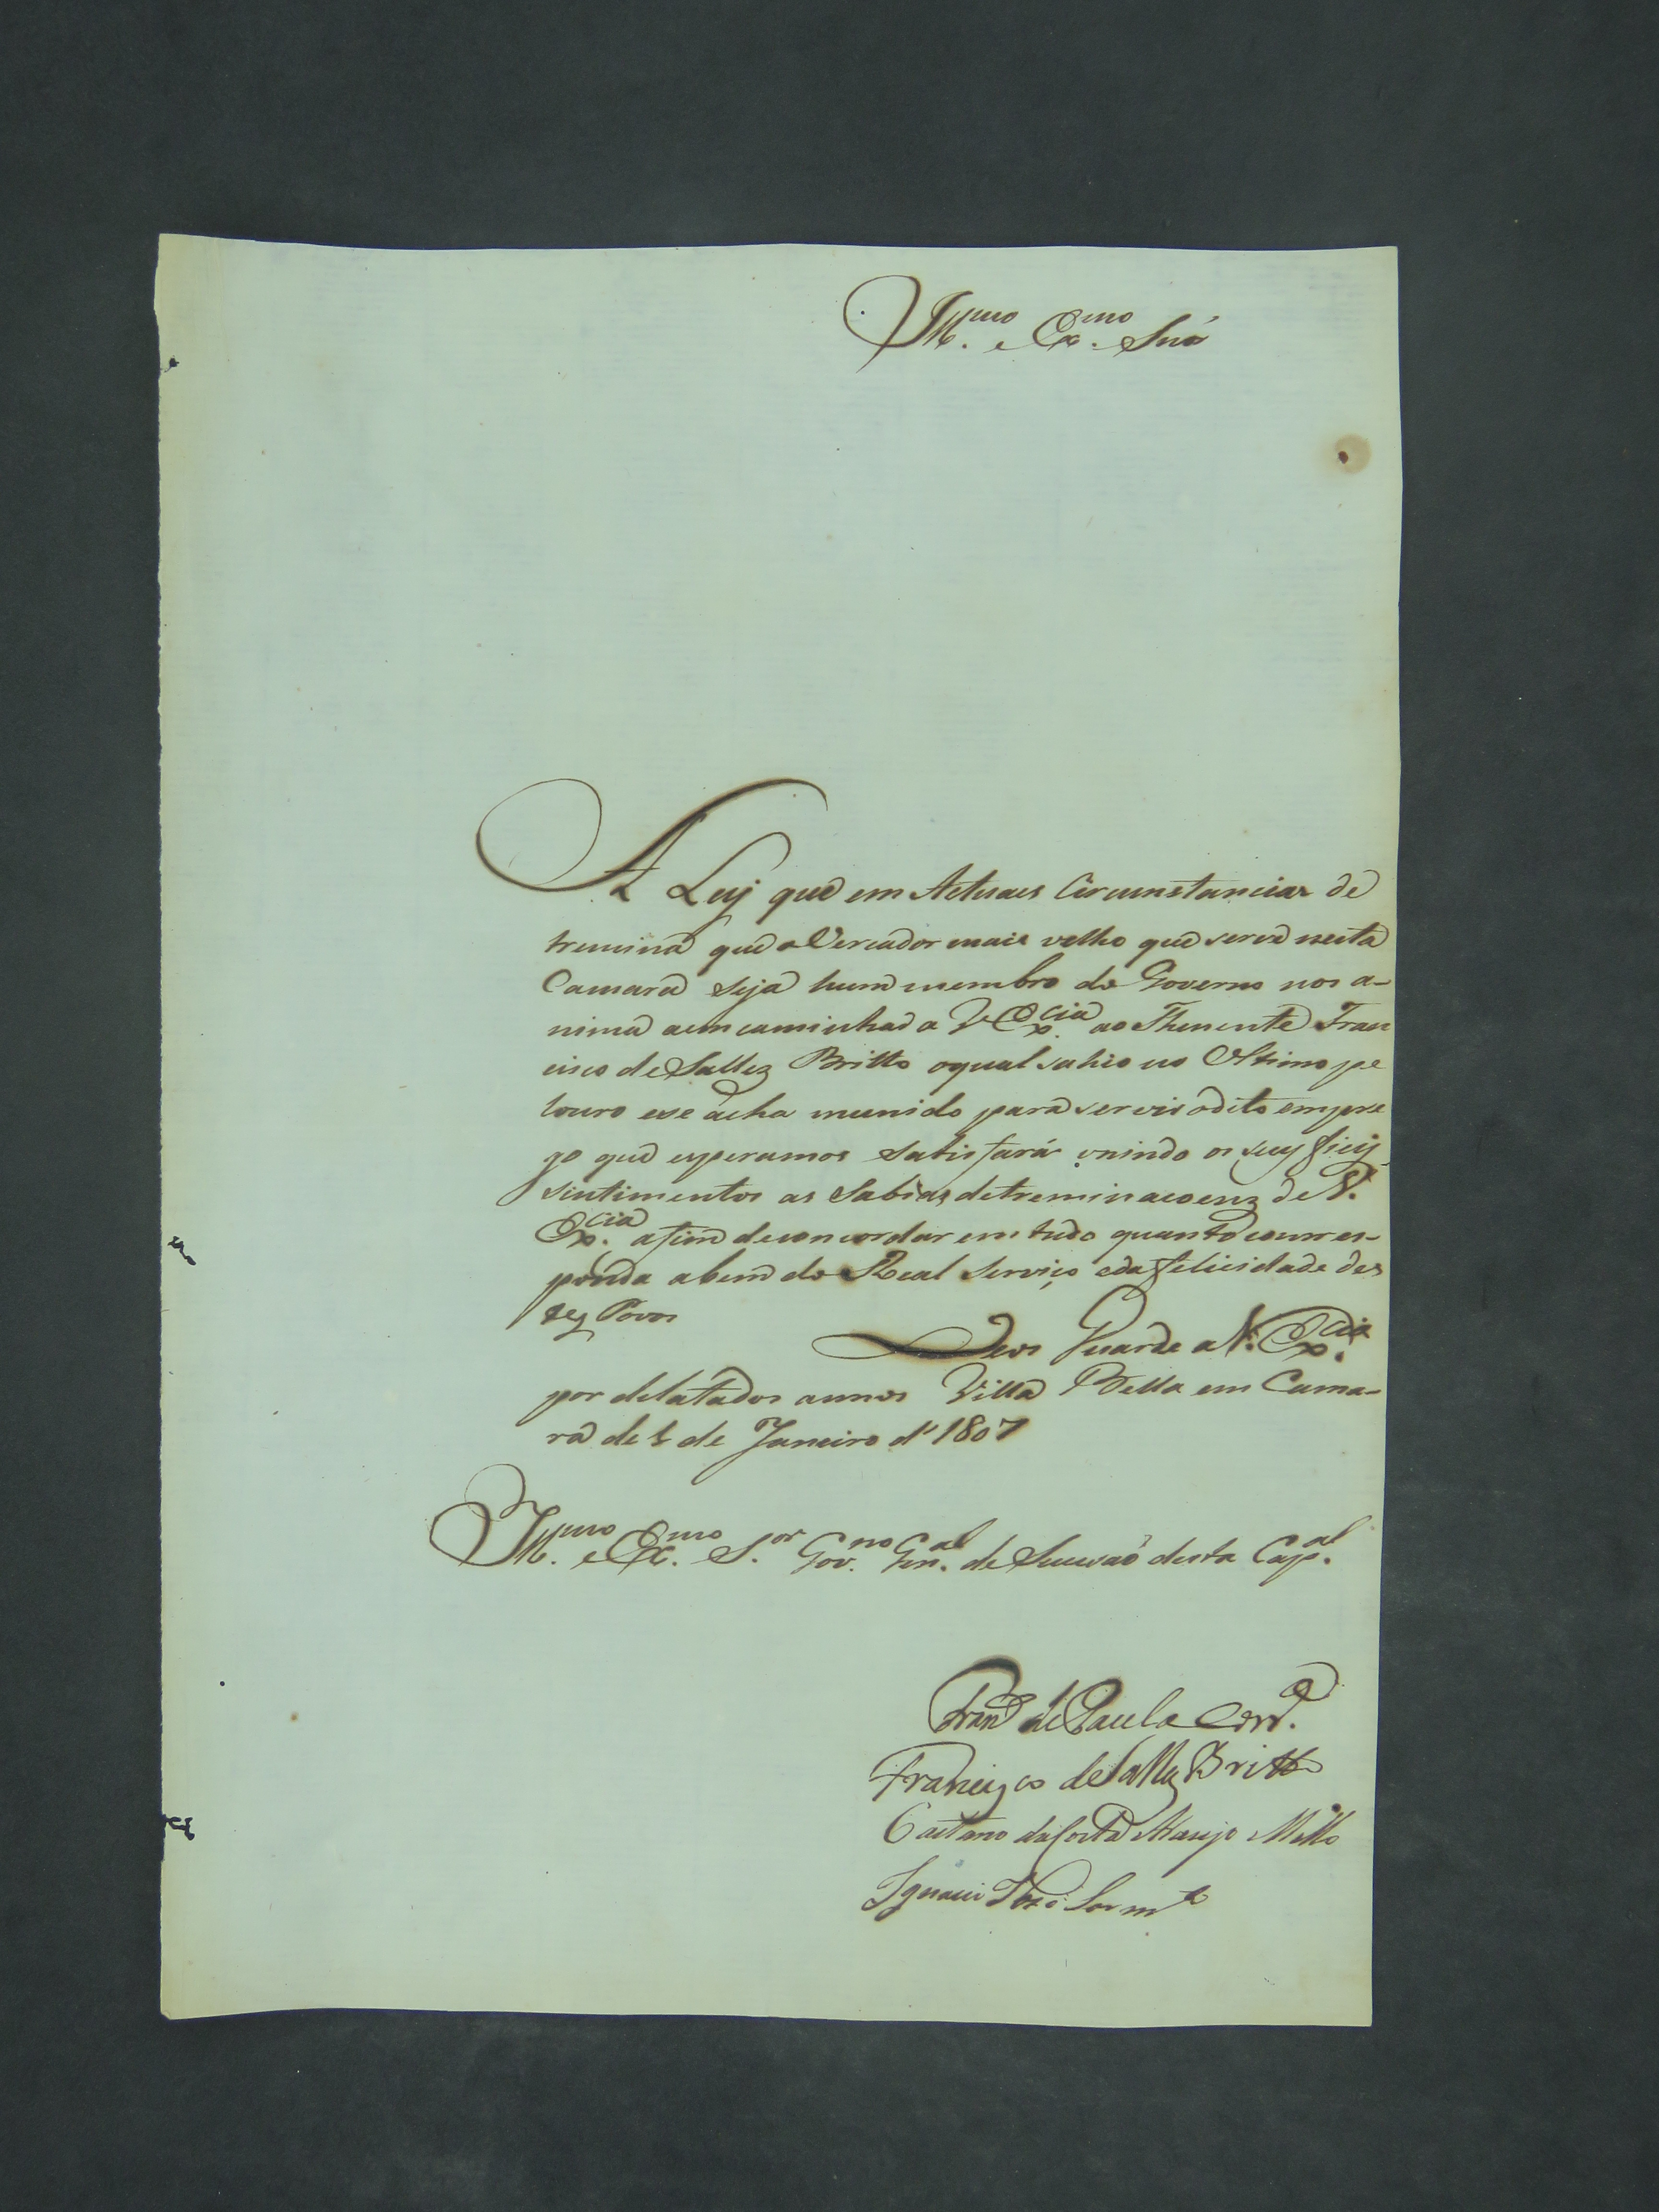 Ill.mo e Ex.mo Snr̃
A Ley que em Actuaes Circunstancias de
tremina que o Vereador mais velho que serve nesta
Camara seja hum membro do Governo nos a-
nima a emcaminhad a V Ex.cia ao Thenente Fran
cisco de Sallez Britto o qual sahio no Oltimo pe
louro e se ácha munido para servir o dito empre
go que esperamos satisfará unindo os seuz fieiz
sintimentos as Sabias detreminacoenz de V.
Ex.cia afim de concordar em tudo quanto corres-
ponda a bem do Real Serviço e da felicidade des
tez Povos
Deos Guarde a V. Ex.cia
por delatados annos Villa Bella em Cama-
ra de 1 de Janeiro d' 1807
Ill.mo e Ex.mo S.or Gov.no Gen.al de Sucesaõ desta Cap.al
Fran.co de Paula Corr.a
Francizco de Sallez Britto
Caetano da Costa Araujo Mello
Ignacio Joze Sarm.to